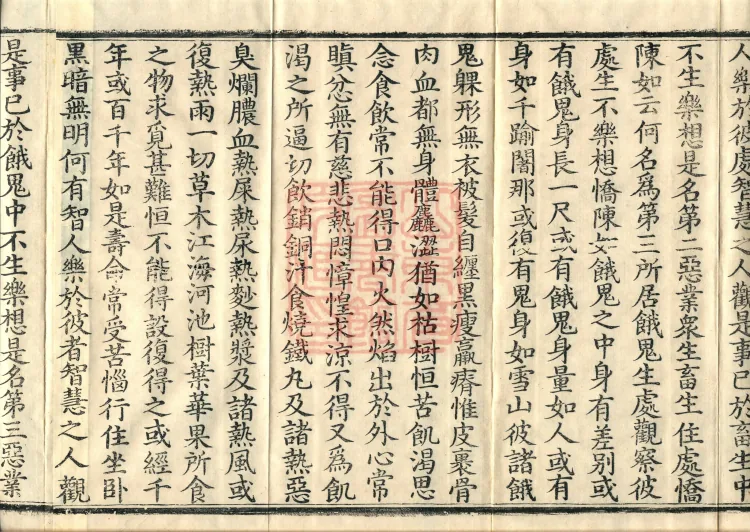 人樂於彼處智慧之人觀是事已於畜生中
不生樂想是名第二惡業衆生畜生住處憍
陳如云何名爲第三所居餓鬼生處觀察彼
處生不樂想憍陳如餓鬼之中身有差別或
有餓鬼身長一尺或有餓鬼身量如人或有
身如千踰闍那或復有鬼身如雪山彼諸餓
鬼躶形無衣被髮自纏黑瘦羸瘠惟皮裹骨
肉血都無身體麤澀猶如枯樹恒苦飢渴思
念食飲常不能得口內火然焰出於外心常
瞋忿無有慈悲熱悶慞惶求涼不得又爲飢
渴之所逼切飲銷銅汁食燒鐵丸及諸熱惡
臭爛膿血熱屎熱尿熱麨熱漿及諸熱風或
復熱雨一切草木江海河池樹葉華果所食
之物求覓甚難恒不能得設復得之或經千
年或百千年如是壽命常受苦惱行住坐卧
黑暗無明何有智人樂於彼者智慧之人觀
是事已於餓鬼中不生樂想是名第三惡業